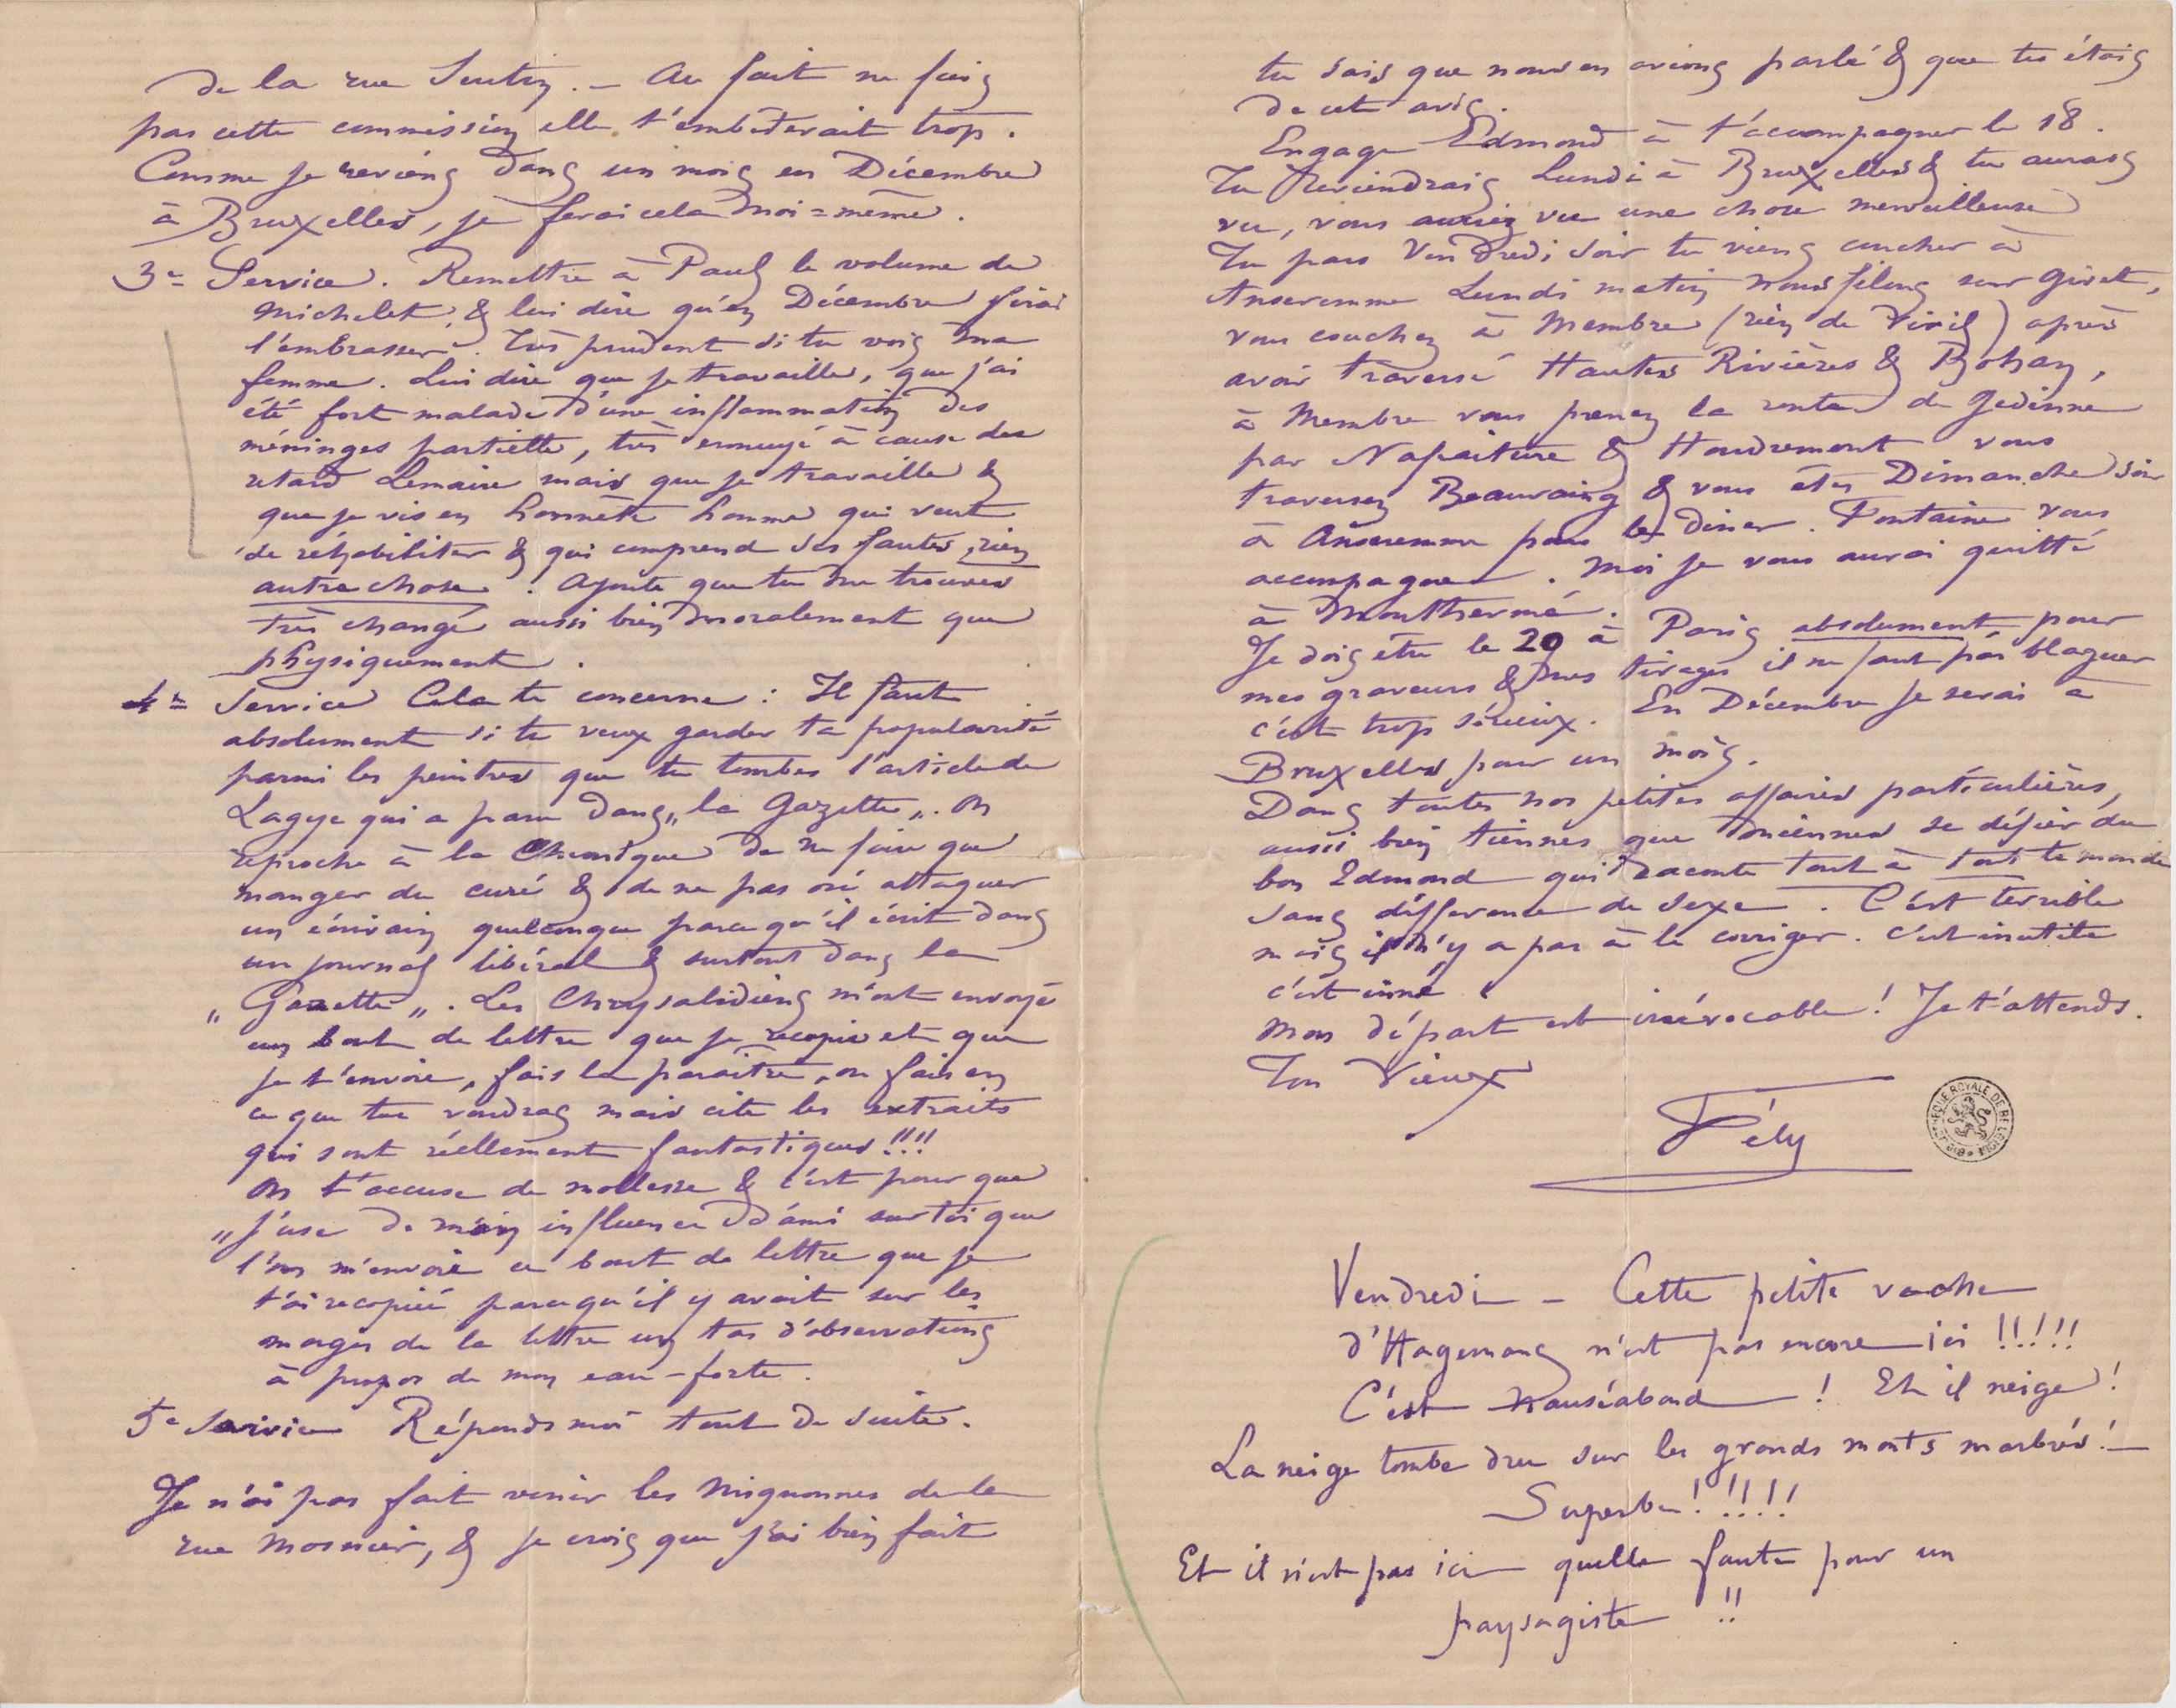 de la rue Seutin. — Au fait ne fais
pas cette commission elle t'embêterait trop.
Comme je reviens dans un mois en Décembre
à Bruxelles, je ferai cela moi=même.
3e Service. Remettre à Paul le volume de
Michelet, & lui dire qu'en Décembre j'irai
l'embrasser. Très prudent si tu vois ma
femme. Lui dire que je travaille, que j'ai
été fort malade d'une inflammation des
méninges partielle, très ennuyé à cause du
retard Lemaire mais que je travaille &
que je vis en honnête homme qui veut
se réhabiliter & qui comprend ses fautes, rien
autre chose. Ajoute que tu me trouves
très changé aussi bien moralement que
physiquement.
4e Service Cela te concerne : Il faut
absolument si tu veux garder ta popularité
parmi les peintres que tu tombes l'article de
Lagye qui a paru dans „la Gazette„. On
reproche à la Chronique de ne faire que
manger du curé & de ne pas oser attaquer
un écrivain quelconque parce qu'il écrit dans
un journal libéral & surtout dans la
„Gazette„. Les Chrysalidiens m'ont envoyé
un bout de lettre que je recopie et que
je t'envoie, fais la paraître, ou fais en
ce que tu voudras mais cite les extraits
qui sont réellement fantastiques !!!!
On t'accuse de mollesse & c'est pour que
„j'use de mon influence d'ami sur toi que
l'on m'envoie ce bout de lettre que je
t'ai recopié parcequ'il y avait sur les
marges de la lettre un tas d'observations
à propos de mon eau-forte.
5e Service Réponds moi tout de suite.
Je n'ai pas fait venir les mignonnes de la
rue Mosnier, & je crois que j'ai bien fait
tu sais que nous en avions parlé & que tu étais
de cet avis.
Engage Edmond à t'accompagner le 18.
Tu reviendrais Lundi à Bruxelles & tu auras
vu, vous auriez vu une chose merveilleuse
Tu pars Vendredi soir tu viens coucher à
Anseremme Lundi matin nous filons sur Givet,
vous couchez à Membre (rien de viril) après
avoir traversé Hautes Rivières & Bohan,
à Membre vous prenez la route de Gedinne
par Nafraiture & Houdremont vous
traversez Beauraing & vous êtes Dimanche soir
à Anseremme pour le diner. Fontaine vous
accompagne. Moi je vous aurai quitté
à Monthermé.
Je dois être le 20 à Paris absolument pour
mes graveurs & mes tirages il ne faut pas blaguer
c'est trop sérieux. En Décembre je serai à
Bruxelles pour un mois.
Dans toutes nos petites affaires particulières,
aussi bien tiennes que miennes se défier du
bon Edmond qui raconte tout à tout le monde
sans différence de sexe. C'est terrible
mais il n'y a pas à le corriger. C'est inutile
c'est inné.
Mon départ est irrévocable ! Je t'attends.
Ton Vieux
Fély
BIBLIOTHEQUE ROYALE DE BELGIQUE
Vendredi — Cette petite vache
d'Hagemans n'est pas encore ici !!!!!
C'est nauséabond ! Et il neige !
La neige tombe dru sur les grands monts marbrés! —
Superbe ! !!!!
Et il n'est pas ici quelle faute pour un
paysagiste !!